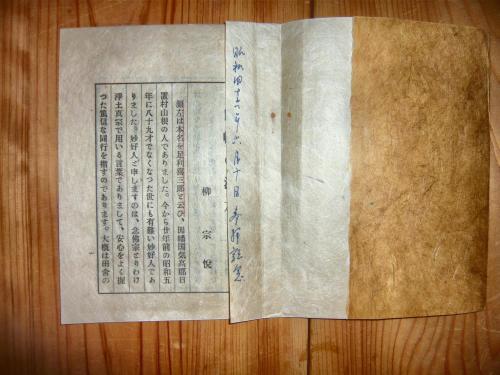 柳宗悦
源左は本名を足利喜三郎と云ひ、因幡国気高郡日
置村山根の人でありました。今から廿年前の昭和五
年に八十九才でなくなつた世にも有難い妙好人であ
りました。妙好人と申しますのは、念佛宗とりわけ
浄土真宗で用いる言葉でありまして、安心をよく握
つた篤信な同行を指すのであります。大概は田舎の